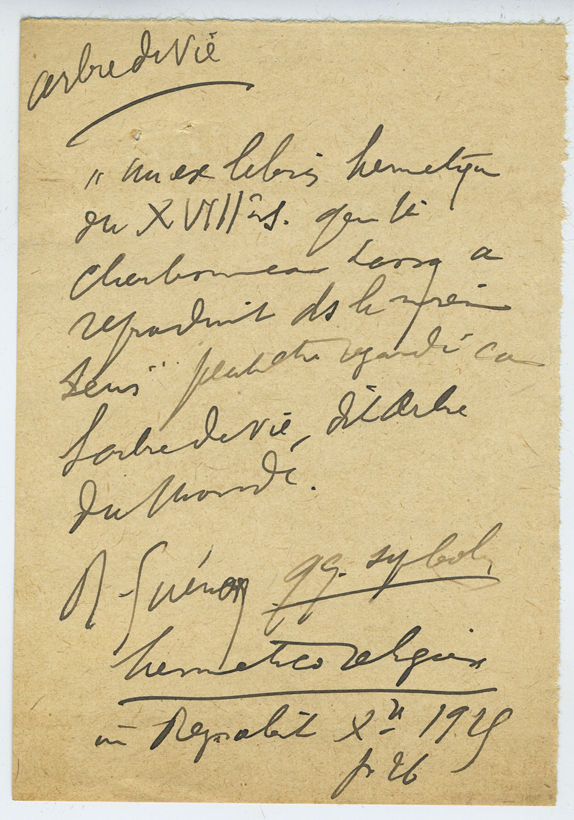 arbre de vie
" un ex libris hermetique
du XVIIIè s. que M.
Charbonneau Lassay a
reproduit ds le
sens" peut etre regardé co
l'arbre de vie, dit Arbre
du Monde.
R. Guénon qq. symboles
hermetico religieux
in Regnabit Xbre 1925
p. 26